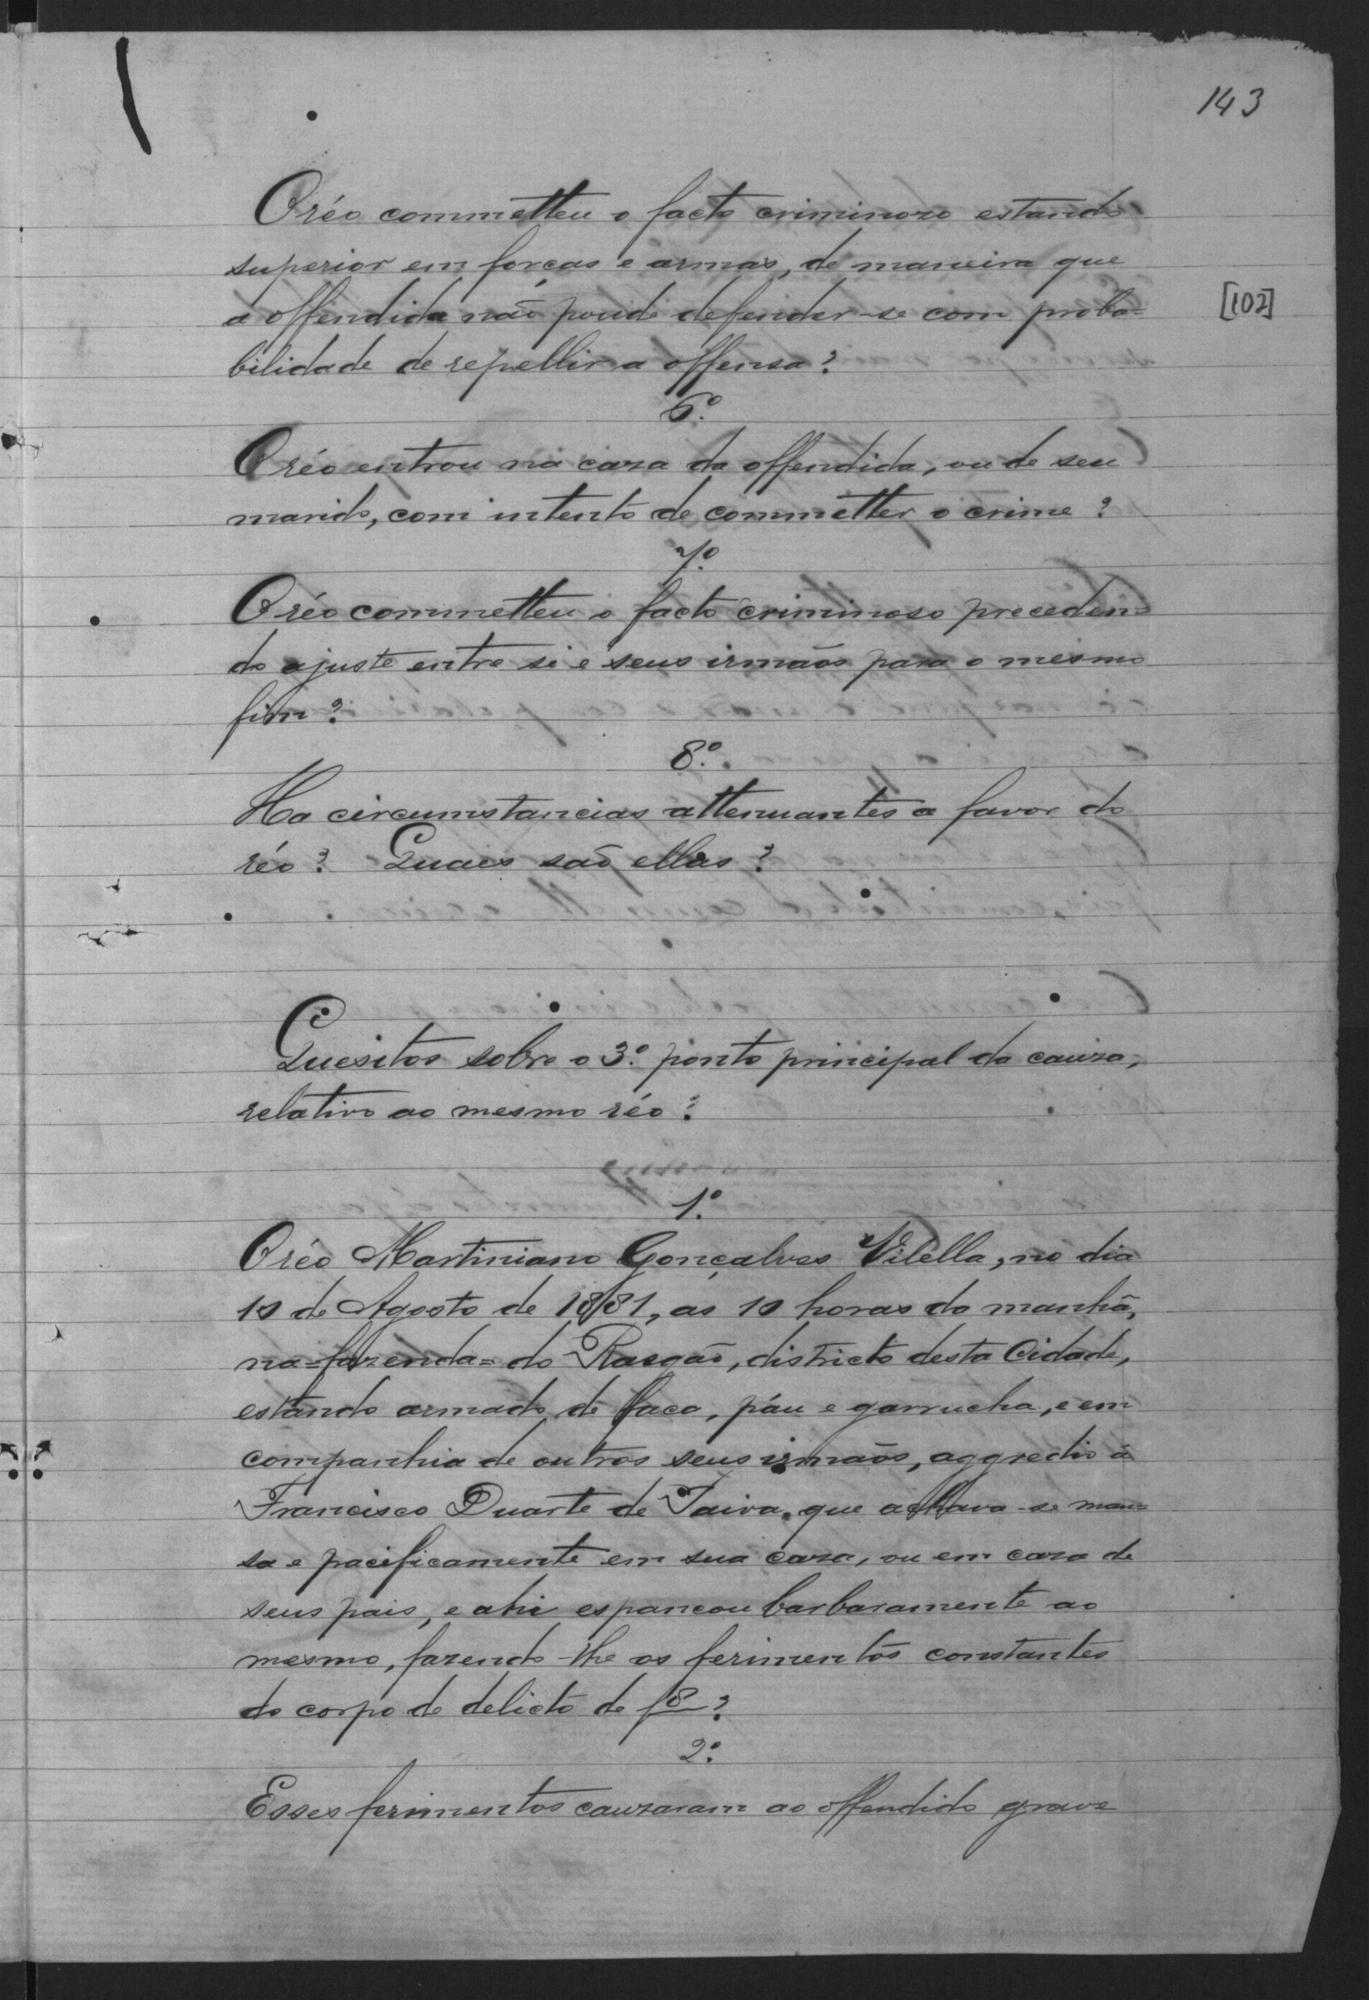 143
O réo commetteu o facto criminozo estando
superior em forças e armas, de maneira que
a offendida não poude defender-se com proba=
[102]
bilidade de repellir a offensa?
6º.
O réo entrou na caza da offendida, ou de seu
marido, com intento de commetter o crime?
7º.
O réo commetteu o facto criminoso preceden=
do ajuste entre si e seus irmãos para o mesmo
fim?
8º.
Ha circumstancias attenuantes a favor do
réo? Quaes são ellas?
Quesitos sobre o 3º. ponto principal da cauza,
relativo ao mesmo réo:
1º.
O réo Martiniano Gonçalves Vilella, no dia
10 de Agosto de 1881, as 10 horas da manhã,
na=fazenda=do Rasgão, districto desta Cidade,
estando armado de faca, páu e garrucha, e em
companhia de outros seus irmãos, aggredio á
Francisco Duarte de Paiva, que achava-se man=
sa e pacificamente em sua caza, ou em caza de
seus pais, e ahi espancou barbaramente ao
mesmo, fazendo-lhe os ferimentos constantes
do corpo de delicto de f 8?
2º.
Esses ferimentos cauzaram ao offendido grave